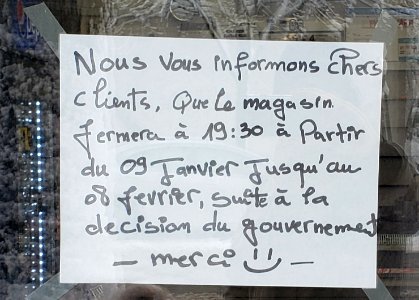 Nous vous informons chers
clients, Que le magasin
fermera à 19:30 à Partir
du 09 Janvier Jusqu'au
08 fevrier, suite à la
decision du gouvernement
- merci -